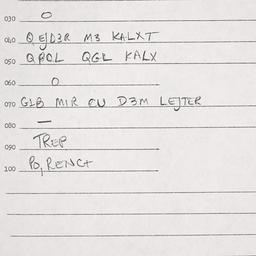 030 O
040 Q EJD3R M3 KALXT
050 QPOL QGL KALX
060 O
070 G1B MIR CU D3M LEJTER
080 —
090 TREP
100